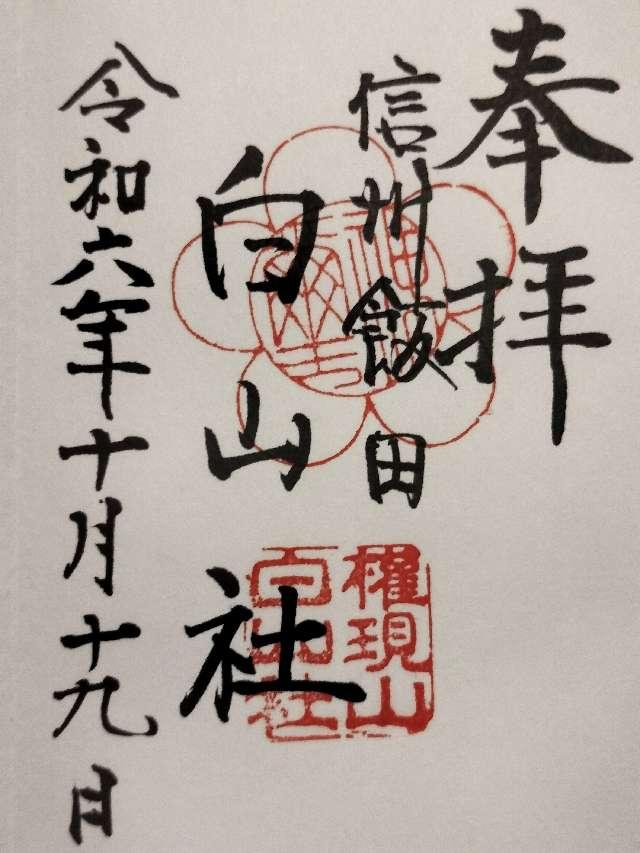 奉拝
信州飯田
白山社
権現山
白山社
令和六年十月十九日